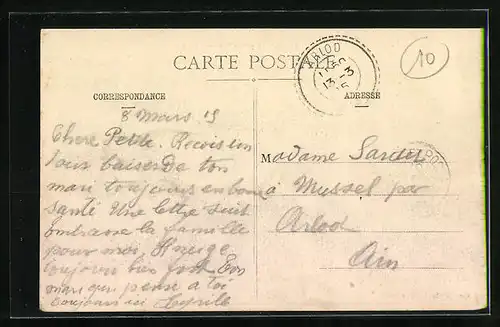 CARTE POSTALE
10
ARLOD
13 -3
15
CORRESPONDANCE
ADRESSE
8 Mars 15
Chere Petite. Recois un
doux baiser De ton
mari toujours en bonne
santé Une lettre suit
embrasse la famille
pour moi. Il neige
toujours bien fort Ton
mari qui pense a toi
toujours
Madame
à Mussel par
Arlod
Ain